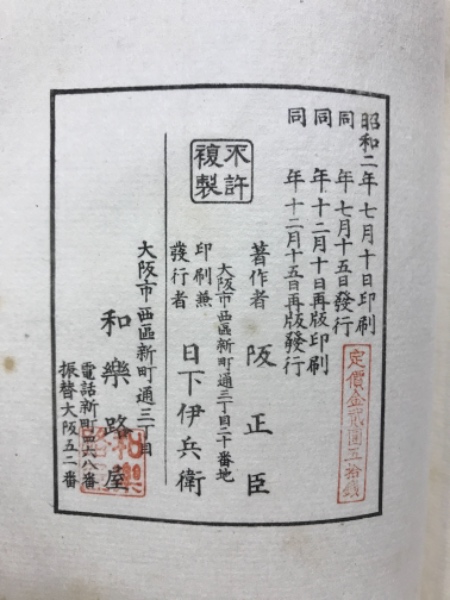 昭和二年七月十日印刷
同 年七月十五日發行
同 年十二月十日再版印刷
同 年十二月十五日再版發行
定價金貳圓五拾錢
不許
複製
著作者 阪正臣
大阪市西區新町通三丁目二十番地
印刷兼
發行者 日下伊兵衛
大阪市西區新町通三丁目
和樂路屋
電話新町四六八番
振替大阪五二番
和樂
路屋